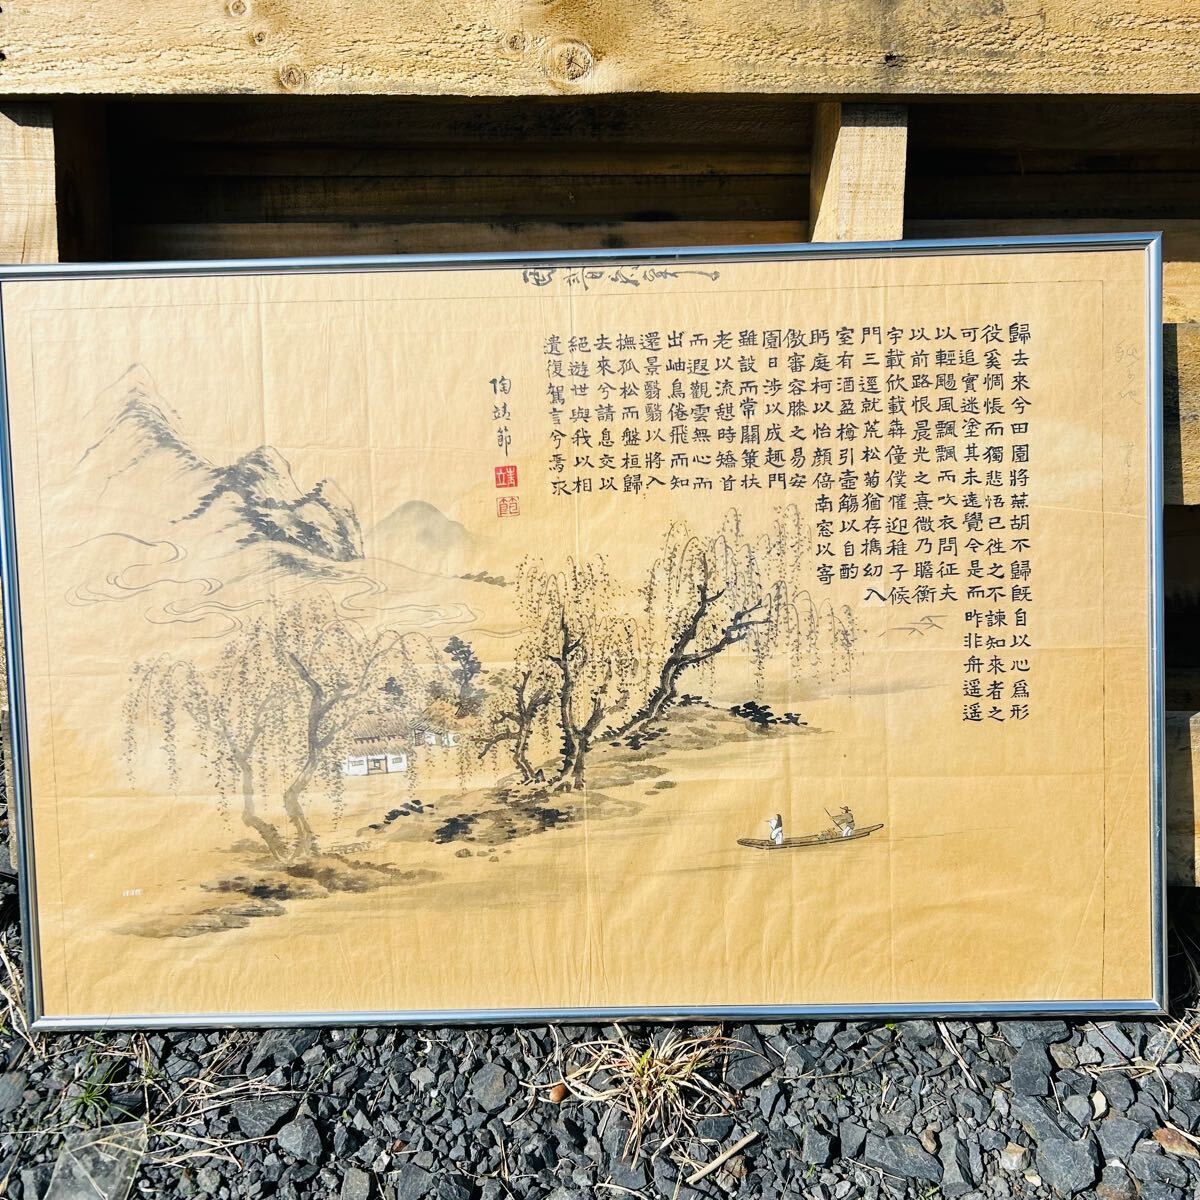 歸去來兮田園將蕪胡不歸既自以心爲形
役奚惆悵而獨悲悟已往之不諫知來者之
可追實迷塗其未遠覺今是而昨非舟遥遥
以輕颺風飄飄而吹衣問征夫
以前路恨晨光之熹微乃瞻衡
宇載欣載犇僮僕懽迎稚子候
門三逕就荒松菊猶存攜幼入
室有酒盈樽引壺觴以自酌
眄庭柯以怡顏倚南窓以寄
傲審容膝之易安
園日涉以成趣門
雖設而常關策扶
老以流憩時矯首
而遐觀雲無心而
出岫鳥倦飛而知
還景翳翳以將入
撫孤松而盤桓歸
去來兮請息交以
絕遊世與我以相
遺復駕言兮焉求
陶靖節
靖
節